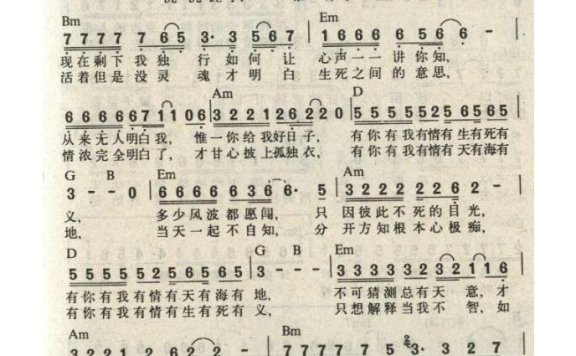 Bm Em
7 7 7 7 7 7 6 5 3· 3 5 6 7 1 6 6 6 6 5 6 6 –
现在剩下我独 行如何让 心声一一讲你知,
活着但是没灵 魂才明白 生死之间的意思,
Am D
6 6 6 6 6 6 7 1 1 0 6 3 2 2 1 1 2 6 2 2 0 5 5 5 5 5 2 5 6 5 6 5
从来无人明白我, 惟一你给我好日子, 有你有我有情有生有死有
情浓完全明白了, 才甘心披上孤独衣, 有你有我有情有天有海有
G B Em Am
3 – – 0 6 6 6 6 6 3 6 6· 5 3 2 2 2 2 2 6 2 –
义, 多少风波都愿闯, 只因彼此不死的目光,
地, 当天一起不自知, 分开方知根本心极痴,
D G B Em
5 5 5 5 5 2 5 6 5 6 5 3 – – – 3 3 3 3 3 3 2 3 2 1 1 1 6
有你有我有情有天有海有 地, 不可猜测总有天 意,才
有你有我有情有生有死有 义, 只想解释当我不 智,如
Am Bm